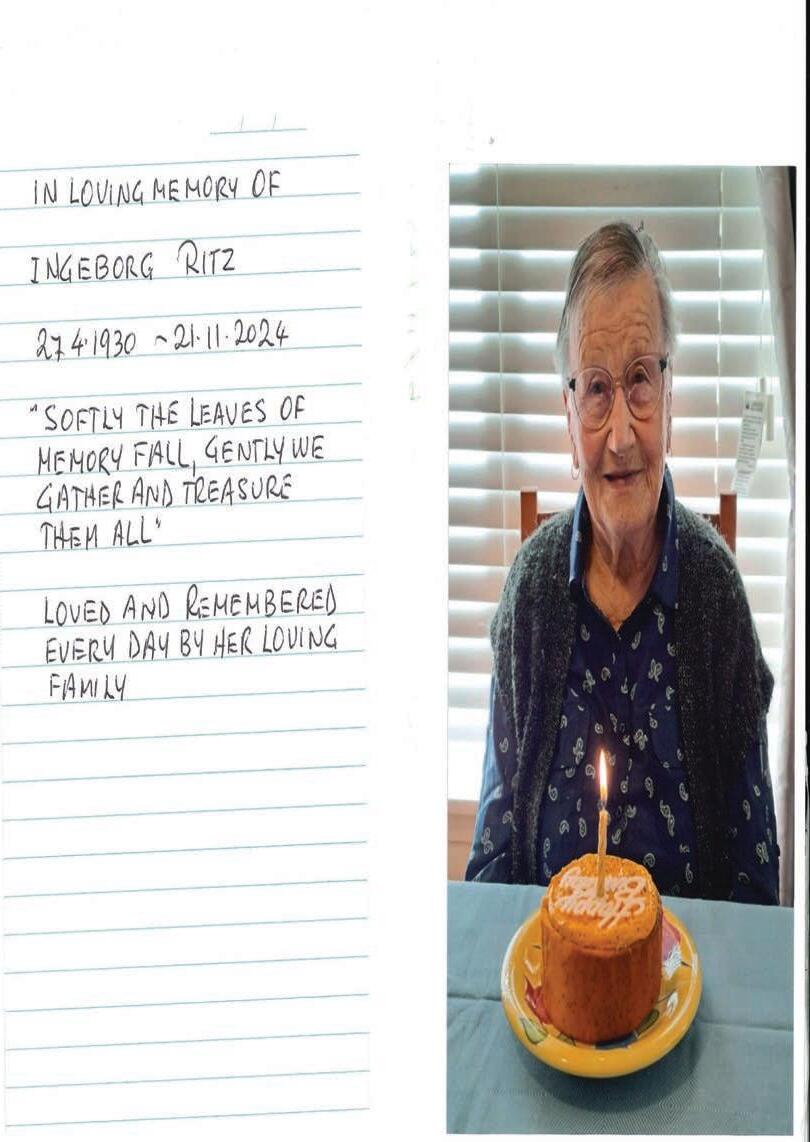 IN LOVING MEMORY OF
INGEBORG RITZ
27.4.1930 ~ 21.11.2024
"SOFTLY THE LEAVES OF
MEMORY FALL, GENTLY WE
GATHER AND TREASURE
THEM ALL"
LOVED AND REMEMBERED
EVERY DAY BY HER LOVING
FAMILY
Happy
Birthday